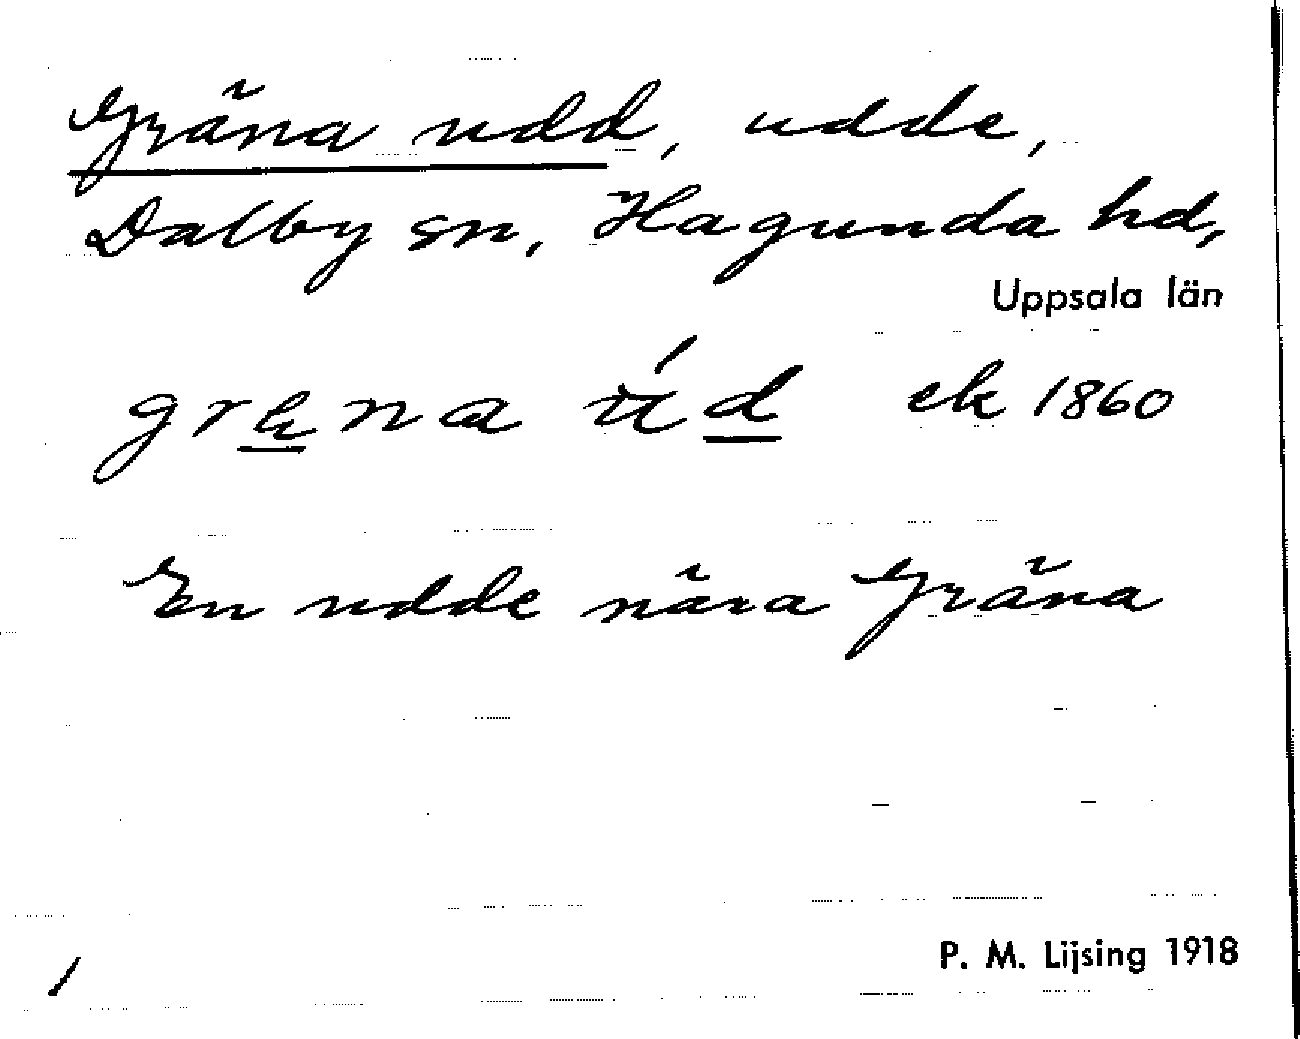 Gräna udd, udde,
Dalby sn, Hagunda hd,
Uppsala län
ek 1860
En udde nära Gräna
P. M. Lijsing 1918
/